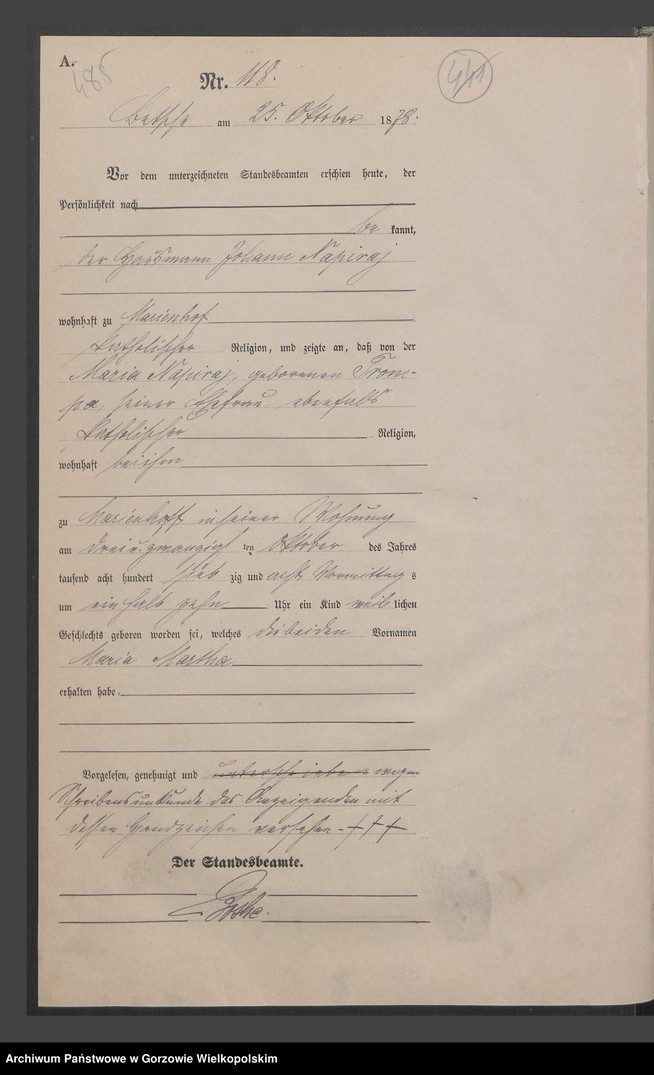 A.
485
Nr. 118.
411
Betsche am 25. Oktober 1878.
Vor dem unterzeichneten Standesbeamten erschien heute, der
Persönlichkeit nach
be kannt,
der Johann Napiraj
wohnhaft zu Marienhof
katholischer Religion, und zeigte an, daß von der
Maria Napiraj, geborenen Trom-
pa, seiner Ehefrau, ebenfalls
katholischer Religion,
wohnhaft bei ihm
zu Marienhoff in seiner Wohnung
am drei u. zwanzigsten Oktober des Jahres
tausend acht hundert sieb zig und acht Vormittags
um ein halb zehn Uhr ein Kind weib lichen
Geschlechts geboren worden sei, welches die beiden Vornamen
Maria Martha
erhalten habe.
Vorgelesen, genehmigt und unterschrieben wegen
Schreibensunkunde des Anzeigenden mit
dessen Handzeichen versehen. +++
Der Standesbeamte.
Archiwum Państwowe w Gorzowie Wielkopolskim